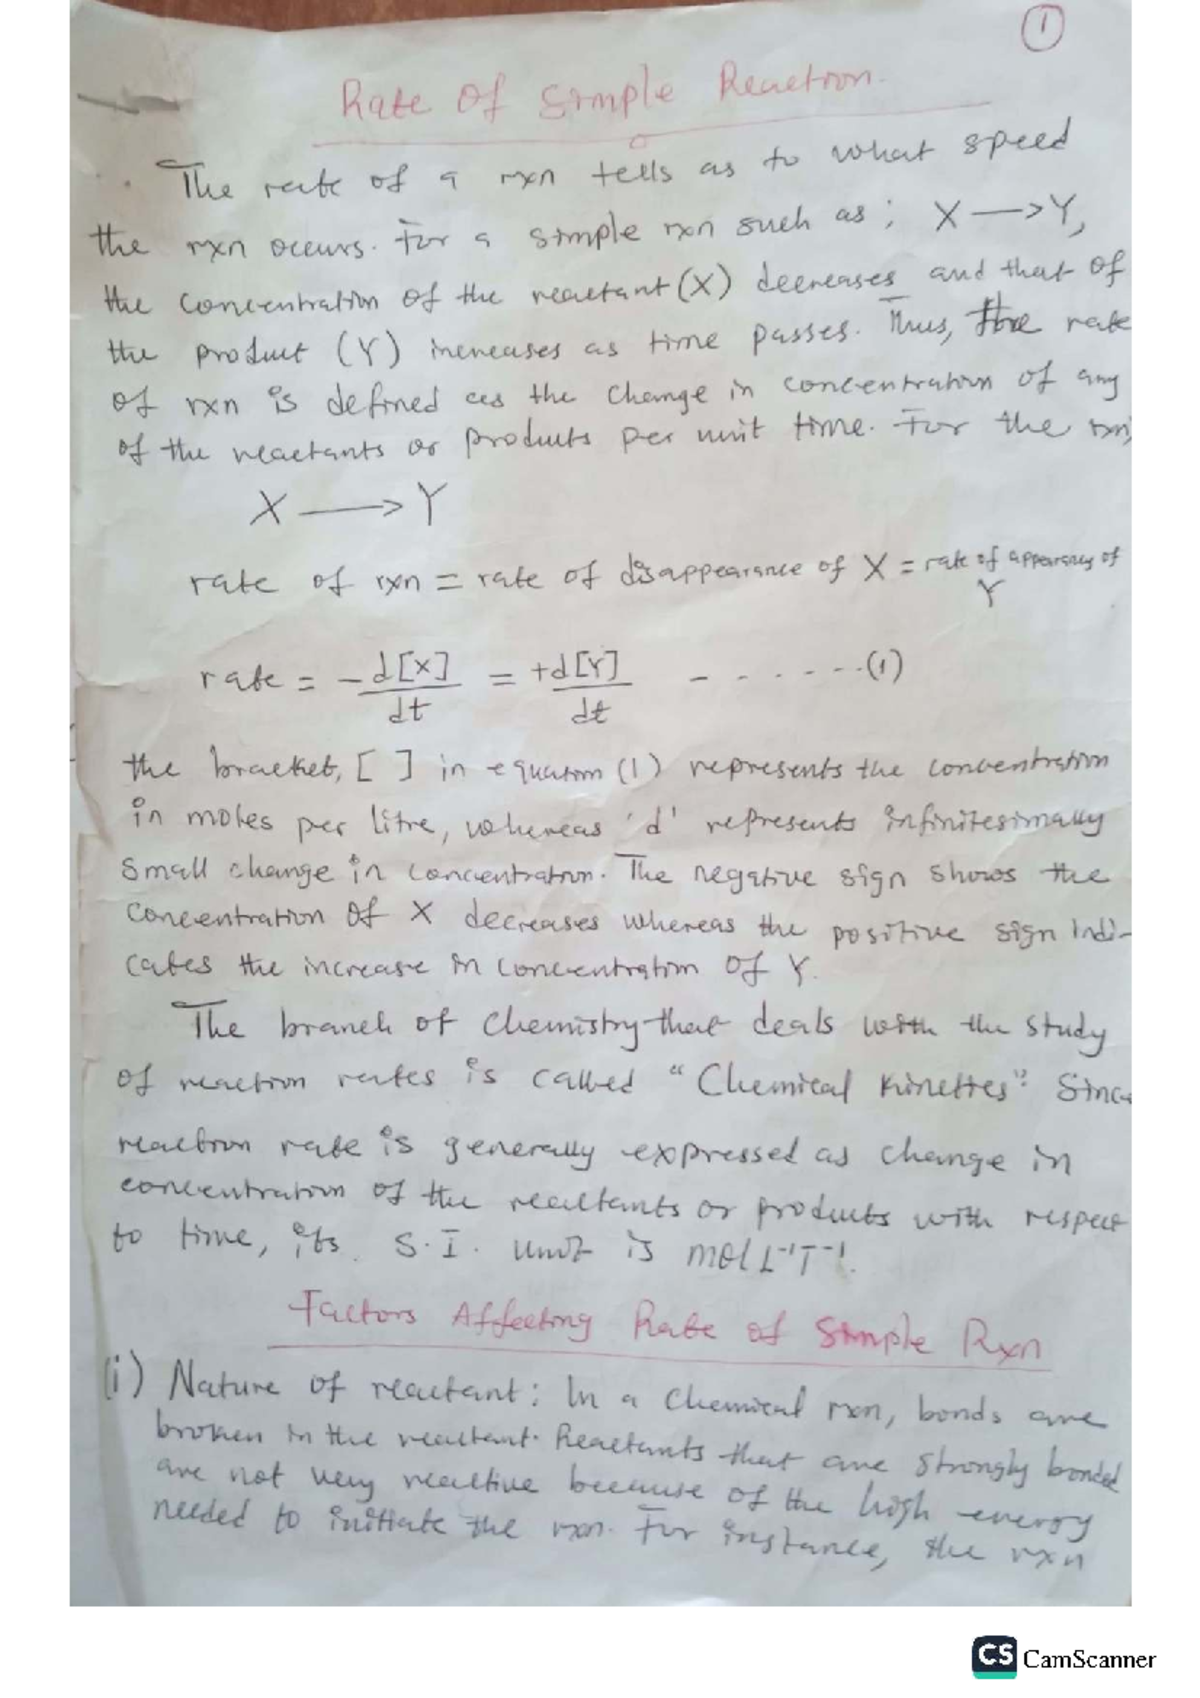 1
Rate Of Simple Reaction.
The rate of a rxn tells as to what speed
the rxn occurs. For a simple rxn such as; X —> Y,
the concentration of the reactant (X) decreases and that of
the product (Y) increases as time passes. Thus, the rate
of rxn is defined as the change in concentration of any
of the reactants or products per unit time. For the rxn,
X —> Y
rate of rxn = rate of disappearance of X = rate of appearancy of
Y
rate = -d[X]/dt = +d[Y]/dt - - . . - - - . . (1)
the bracket, [ ] in equation (1) represents the concentration
in moles per litre, whereas 'd' represents infinitesimally
small change in concentration. The negative sign shows the
concentration of X decreases whereas the positive sign indi-
cates the increase in concentration of Y.
The branch of chemistry that deals with the study
of reaction rates is called "Chemical Kinetics". Since
reaction rate is generally expressed as change in
concentration of the reactants or products with respect
to time, its S.I. unit is mol L⁻¹T⁻¹.
Factors Affecting Rate of Simple Rxn
(i) Nature of reactant: In a chemical rxn, bonds are
broken in the reactant. Reactants that are strongly bonded
are not very reactive because of the high energy
needed to initiate the rxn. For instance, the rxn
CS CamScanner